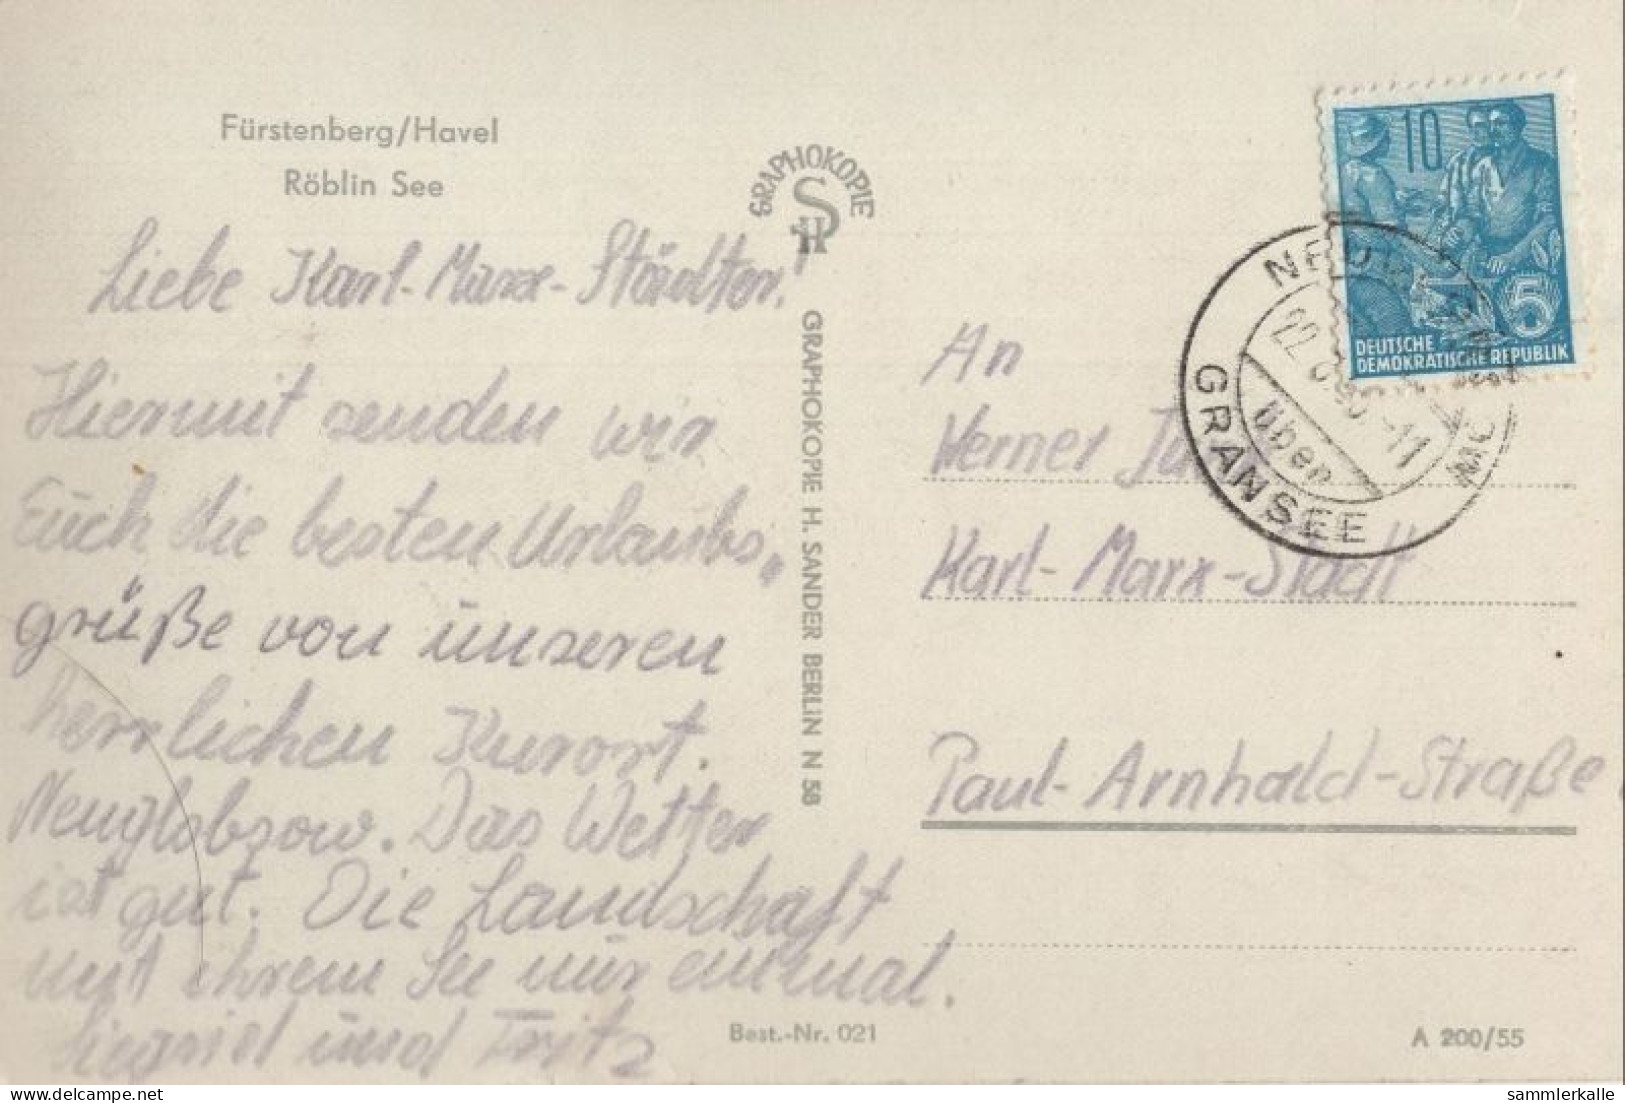 Fürstenberg/Havel
Röblin See
Liebe Karl-Marx-Städter!
Hiermit senden wir
Euch die besten Urlaubs„
grüße von unseren
herrlichen Kurort.
Neuglobsow. Das Wetter
ist gut. Die Landschaft
mit ihrem See nur einmal.
Siegried und Fritz
GRAPHOKOPIE
HS
GRAPHOKOPIE H. SANDER BERLIN N 58
Best.-Nr. 021
10
5
DEUTSCHE
DEMOKRATISCHE REPUBLIK
über
GRANSEE
An
Werner
Karl-Marx-Stadt
Paul-Arnhald-Straße
A 200/55
sammlerkalle